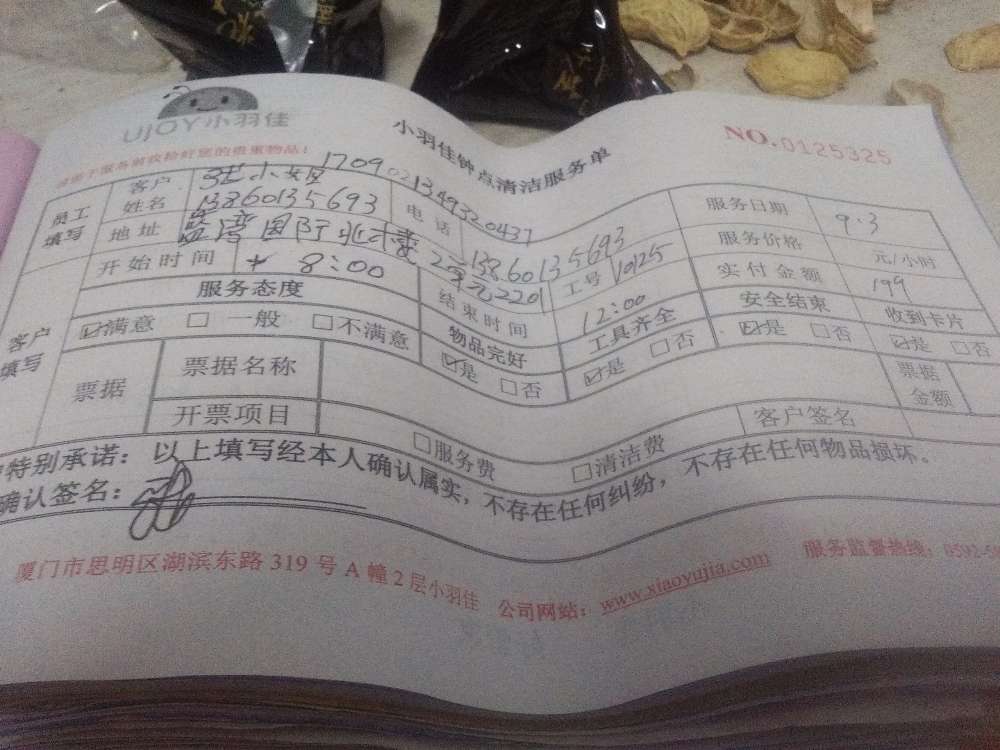 UJOY小羽佳
小羽佳钟点清洁服务单
NO.0125325
员工填写
客户姓名
张小姐
17090213493320437
13860135693
电话
13860135693
服务日期
9.3
地址
蓝湾国际北楼2号元2201
工号
10125
服务价格
元/小时
开始时间
8:00
结束时间
12:00
实付金额
199
客户填写
服务态度
物品完好
工具齐全
安全结束
收到卡片
☑满意 □一般 □不满意
☑是 □否
☑是 □否
☑是 □否
☑是 □否
票据
票据名称
票据金额
开票项目
□服务费 □清洁费
客户签名
特别承诺：以上填写经本人确认属实，不存在任何纠纷，不存在任何物品损坏。
确认签名：
厦门市思明区湖滨东路 319 号 A 幢 2 层小羽佳
公司网站：www.xiaoyujia.com
服务监督热线：0592-